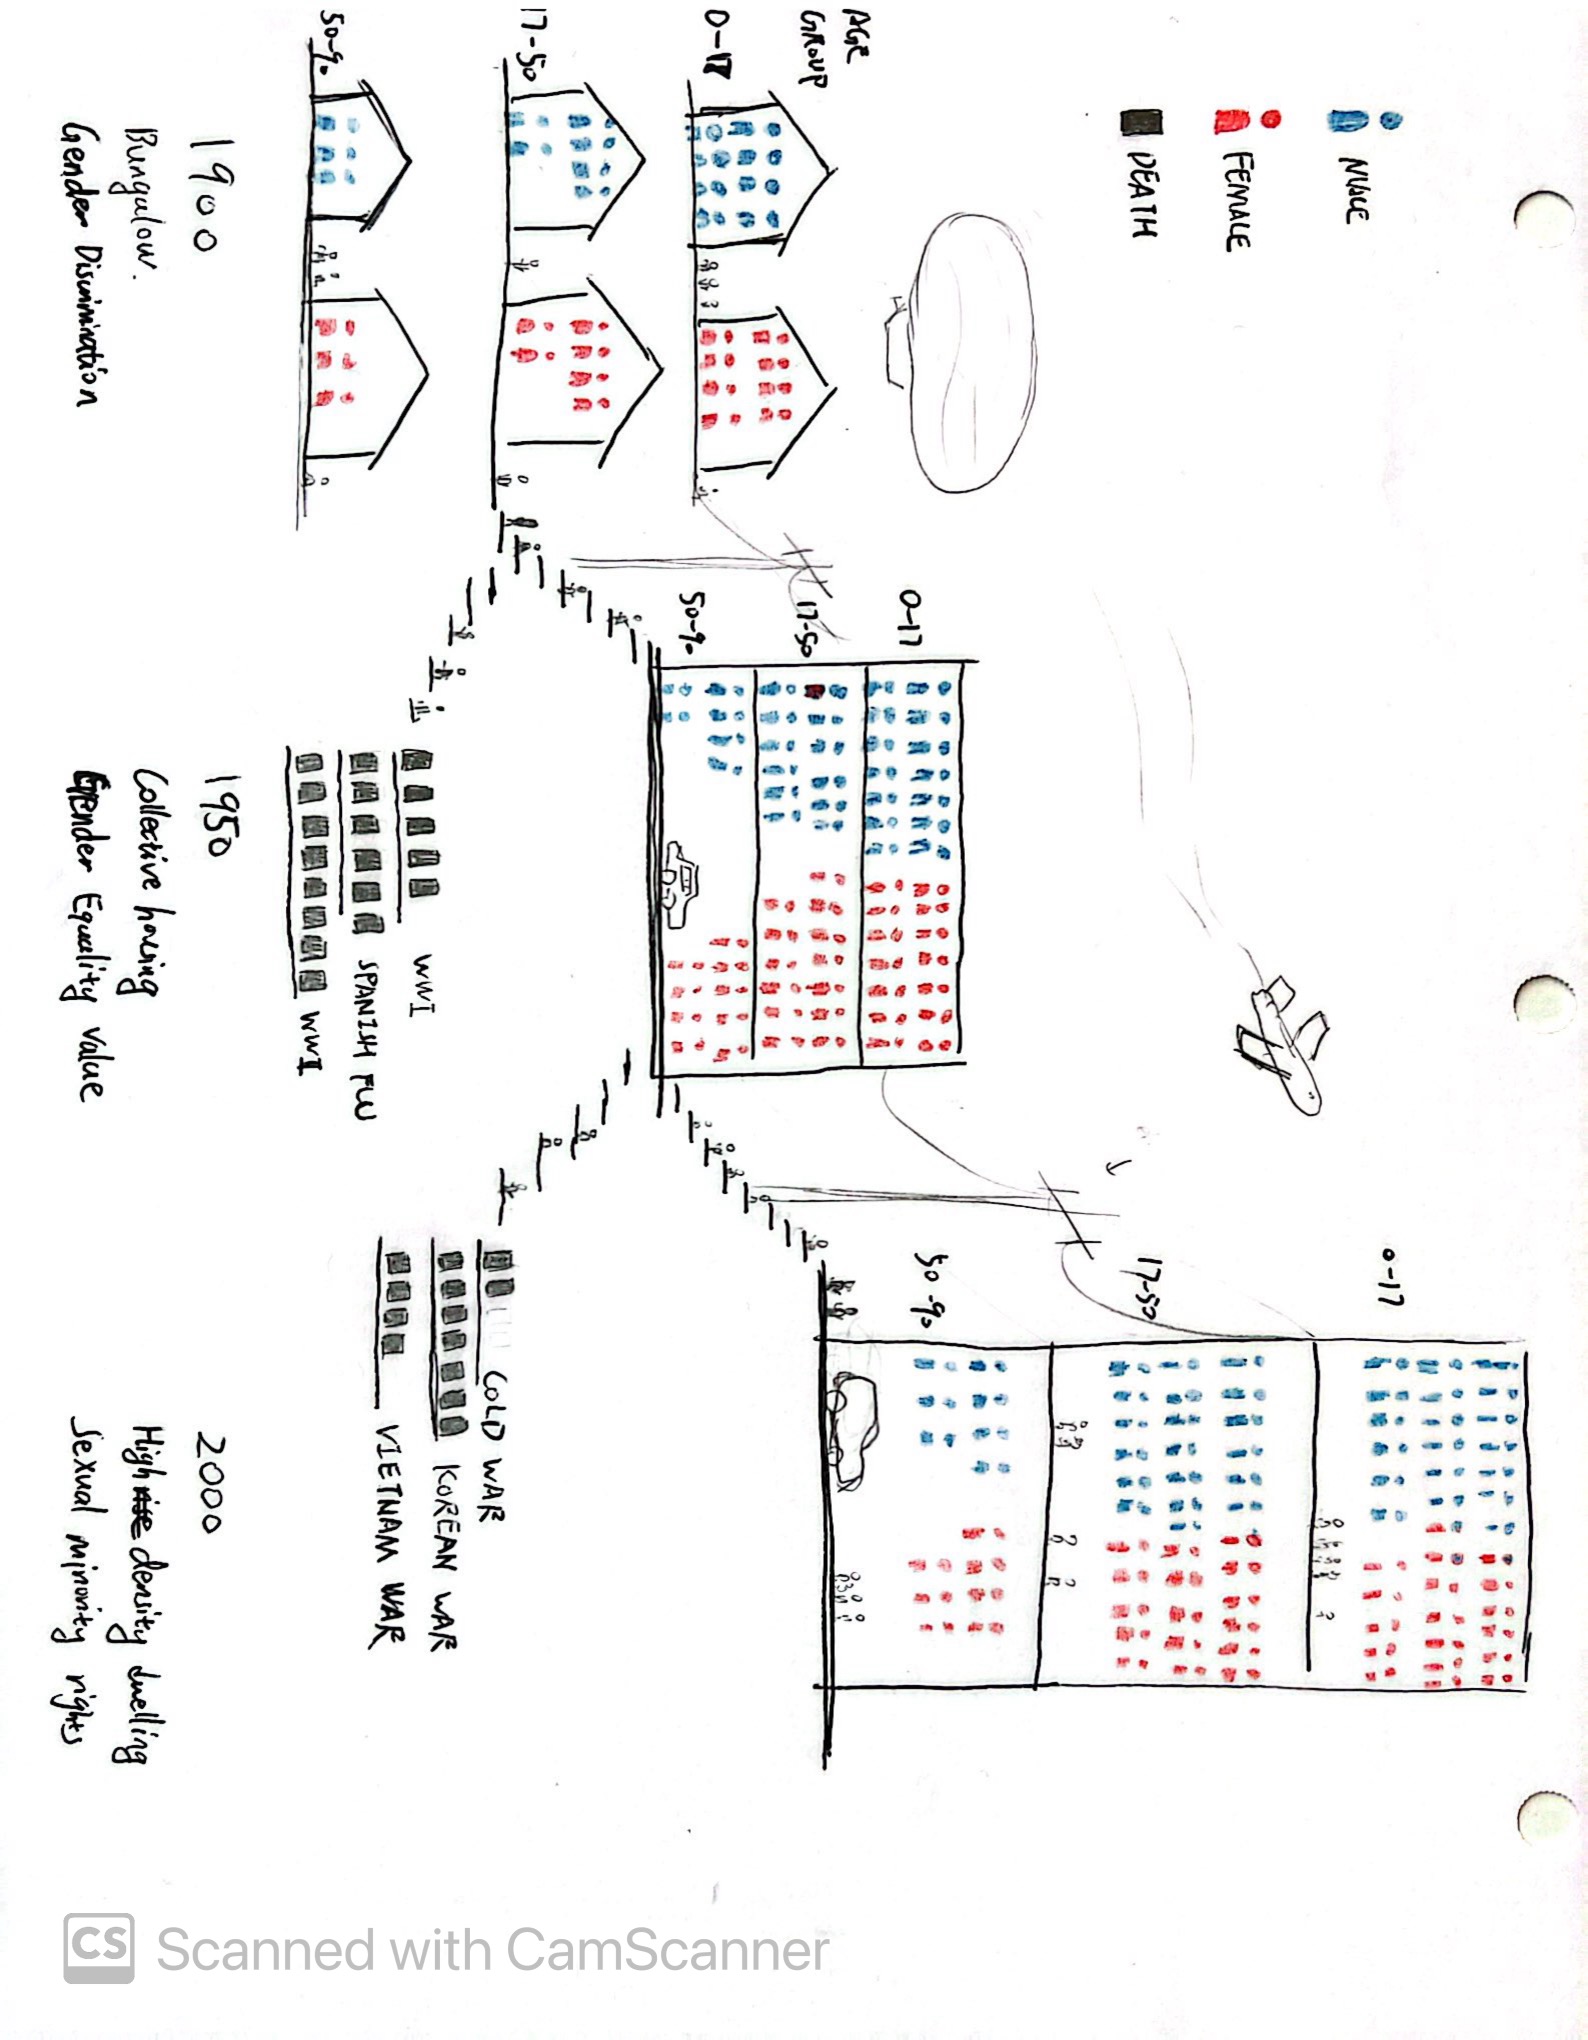 MALE
FEMALE
DEATH
AGE
GROUP
0-17
17-50
50-90
0-17
17-50
50-90
0-17
17-50
50-90
WWI
SPANISH FLU
WWII
COLD WAR
KOREAN WAR
VIETNAM WAR
1900
Bungalow.
Gender Discrimination
1950
Collective housing
Gender Equality value
2000
High rise density dwelling
Sexual minority rights
CS Scanned with CamScanner